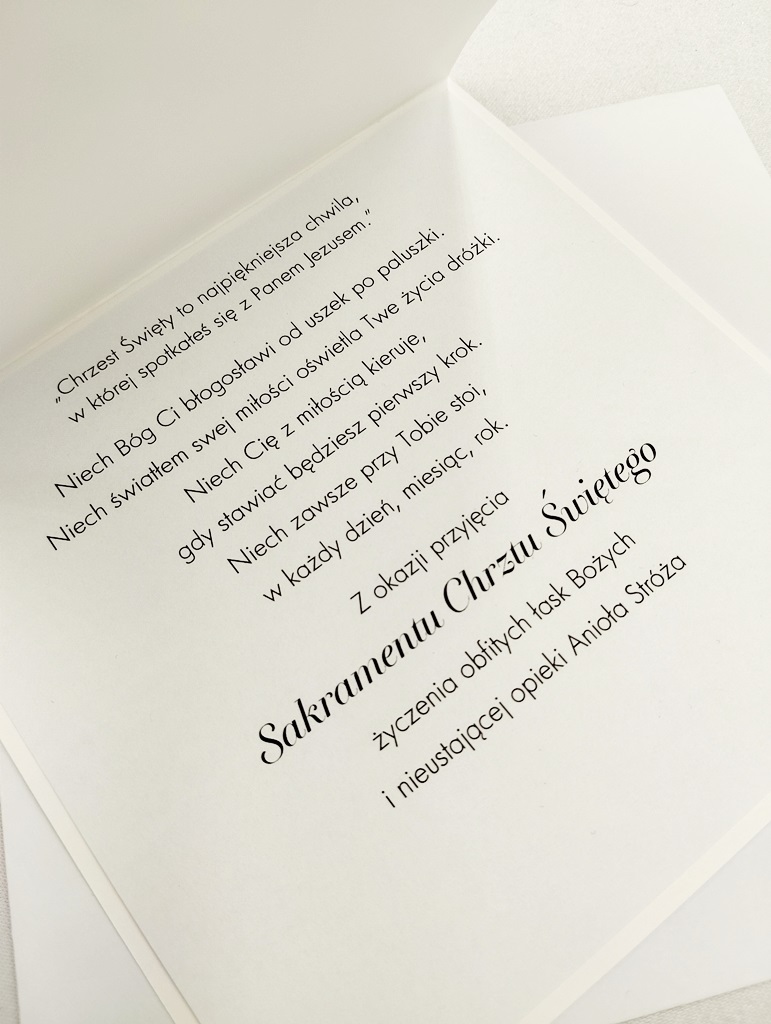 „Chrzest Święty to najpiękniejsza chwila,
w której spotkałeś się z Panem Jezusem.”
Niech Bóg Ci błogosławi od uszek po paluszki.
Niech światłem swej miłości oświetla Twe życia dróżki.
Niech Cię z miłością kieruje,
gdy stawiać będziesz pierwszy krok.
Niech zawsze przy Tobie stoi,
w każdy dzień, miesiąc, rok.
Z okazji przyjęcia
Sakramentu Chrztu Świętego
życzenia obfitych łask Bożych
i nieustającej opieki Anioła Stróża